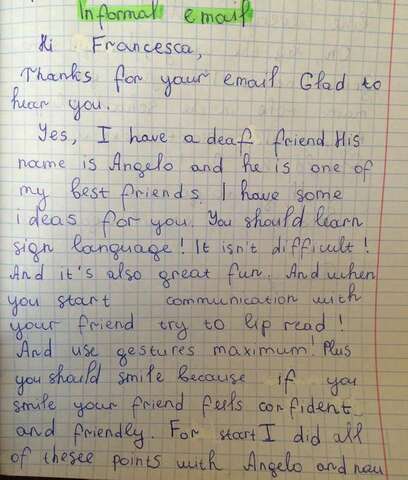 Informal email
Hi Francesca,
Thanks for your email. Glad to
hear you.
Yes, I have a deaf friend. His
name is Angelo and he is one of
my best friends. I have some
ideas for you. You should learn
sign language! It isn't difficult!
And it's also great fun. And when
you start communication with
your friend try to lip read!
And use gestures maximum! Plus
you should smile because if you
smile your friend feels confident
and friendly. For start I did all
of thesee points with Angelo and